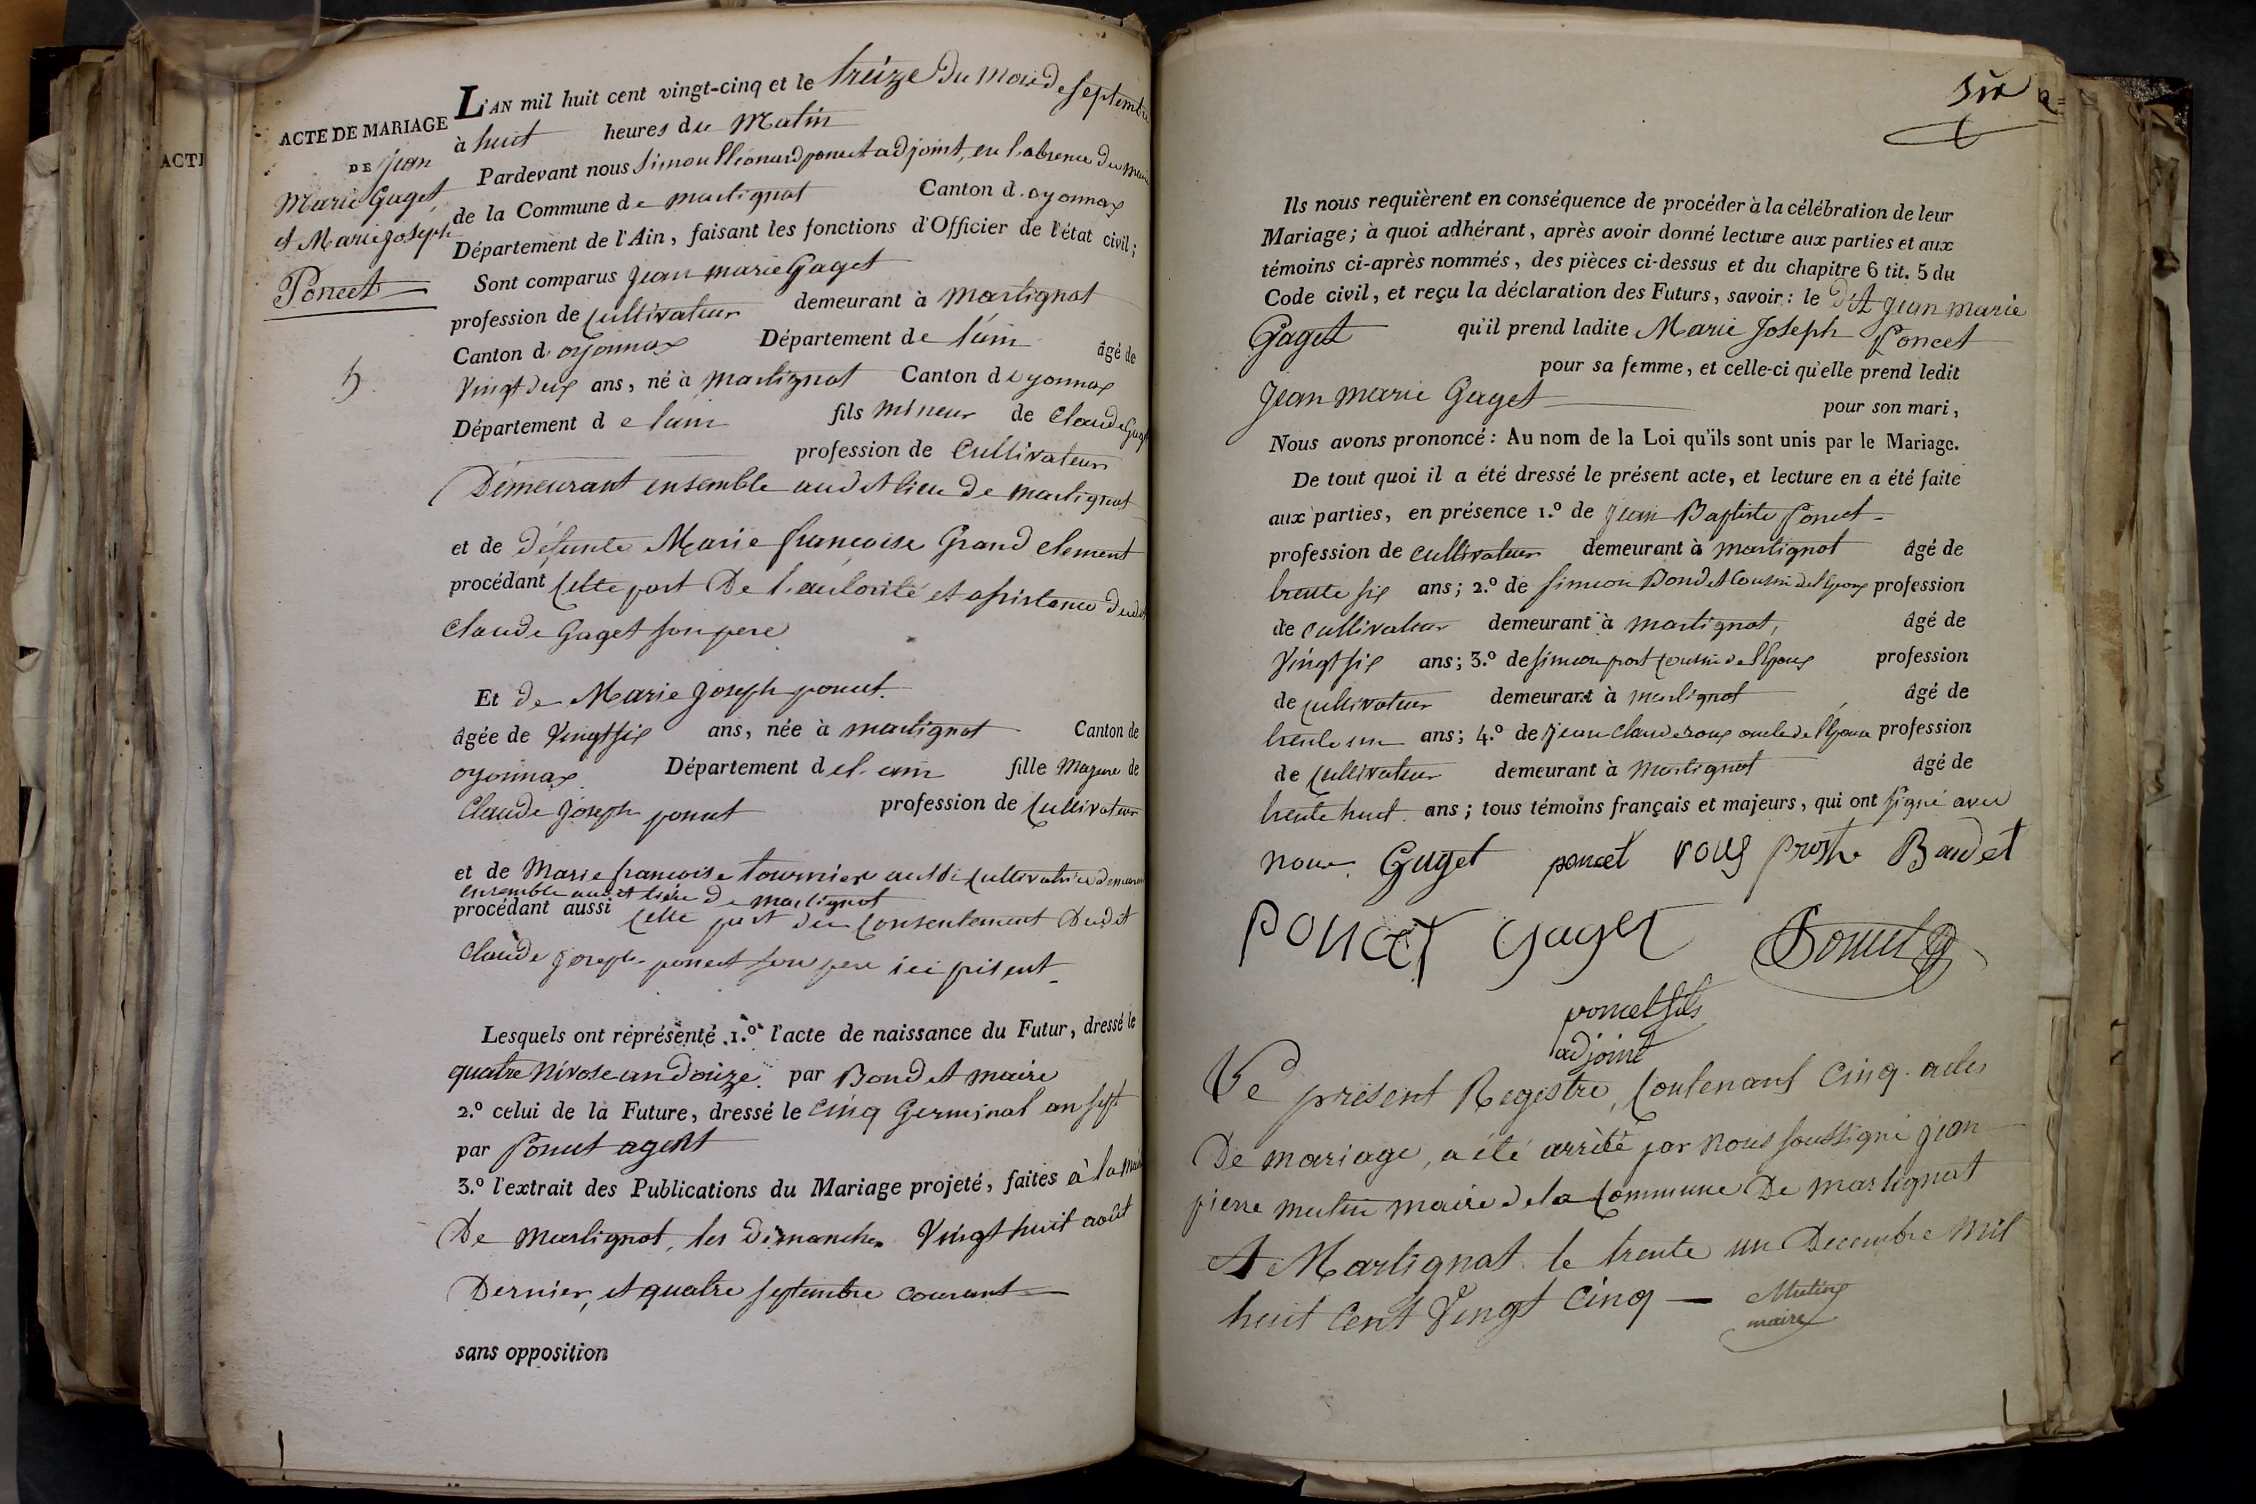 ACTE DE MARIAGE
DE jean
Marie Gaget,
et Marie joseph
Poncet
5
ACTE
L'AN mil huit cent vingt-cinq et le treize du mois de septembre
à huit heures du Matin
Pardevant nous simon Léonard poncet adjoint, en l'absence du maire
de la Commune de martignat Canton d. oyonnax
Département de l'Ain, faisant les fonctions d'Officier de l'état civil;
Sont comparus jean marie Gaget
profession de cultivateur demeurant à martignat
Canton d'oyonnax Département de l'ain âgé de
Vingt deux ans, né à martignat Canton d'oyonnax
Département de l'ain fils mineur de Claude Gaget
profession de Cultivateur
Demeurant ensemble audit lieu de martignat
et de défunte Marie françoise Grand clement
procédant cette part De l'autorité et assistance dudit
Claude Gaget son pere
Et de Marie Joseph poncet.
âgée de Vingt six ans, née à martignat Canton de
oyonnax Département de l'ain fille majeure de
Claude Joseph poncet profession de Cultivateur
et de Marie françoise tournier aussi cultivatrice demeurant
ensemble audit lieu de martignat
procédant aussi cette part du consentement Dudit
Claude joseph poncet son pere ici présent
Lesquels ont représenté 1.º l'acte de naissance du Futur, dressé le
quatre Nivose an douze. par Bondet maire
2.º celui de la Future, dressé le cinq Germinal an sept
par Poncet agent
3.º l'extrait des Publications du Mariage projeté, faites à la mairie
De martignat, les dimanches Vingt huit août
Dernier, et quatre septembre courant
sans opposition
Six
Ils nous requièrent en conséquence de procéder à la célébration de leur
Mariage; à quoi adhérant, après avoir donné lecture aux parties et aux
témoins ci-après nommés, des pièces ci-dessus et du chapitre 6 tit. 5 du
Code civil, et reçu la déclaration des Futurs, savoir: le dit jean marie
Gaget qu'il prend ladite Marie Joseph Poncet
pour sa femme, et celle-ci qu'elle prend ledit
Jean marie Gaget pour son mari,
Nous avons prononcé: Au nom de la Loi qu'ils sont unis par le Mariage.
De tout quoi il a été dressé le présent acte, et lecture en a été faite
aux parties, en présence 1.º de Jean Baptiste Poncet
profession de cultivateur demeurant à martignat âgé de
trente six ans; 2.º de simeon Bondet Cousin de l'époux profession
de cultivateur demeurant à martignat, âgé de
Vingt six ans; 3.º de simeon prost cousin de l'époux profession
de cultivateur demeurant à martignat âgé de
trente un ans; 4.º de Jean Claude roux oncle de l'épouse profession
de cultivateur demeurant à martignat âgé de
trente huit ans; tous témoins français et majeurs, qui ont signé avec
nous. Gaget poncet roux prost Bondet
PONCET Gaget Poncet
poncet fils
adjoint
Le présent Registre, contenant cinq actes
De mariage, a été arrêté par Nous soussigné jean
pierre mutin maire de la commune De martignat
A Martignat le trente un Decembre mil
huit Cent Vingt cinq
Mutin
maire